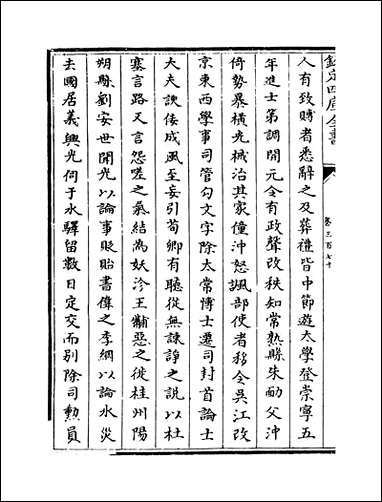 欽定四庫全書
卷三百七十
人有致賻者悉辭之及葬禮皆中節遊太學登崇寧五
年進士第調開元令有政聲改秩知常熟縣朱勔父沖
倚勢暴橫光械治其家僮沖怒諷部使者移令吳江改
京東西學事司管勾文字除太常博士遷司封首論士
大夫諛佞成風至妄引荀卿有聽從無諫諍之說以杜
塞言路又言怨嗟之氣結為妖沴王黼惡之徙桂州陽
朔縣劉安世聞光以論事貶貽書偉之李綱以論水災
去國居義興光伺于水驛留數日定交而別除司勳員